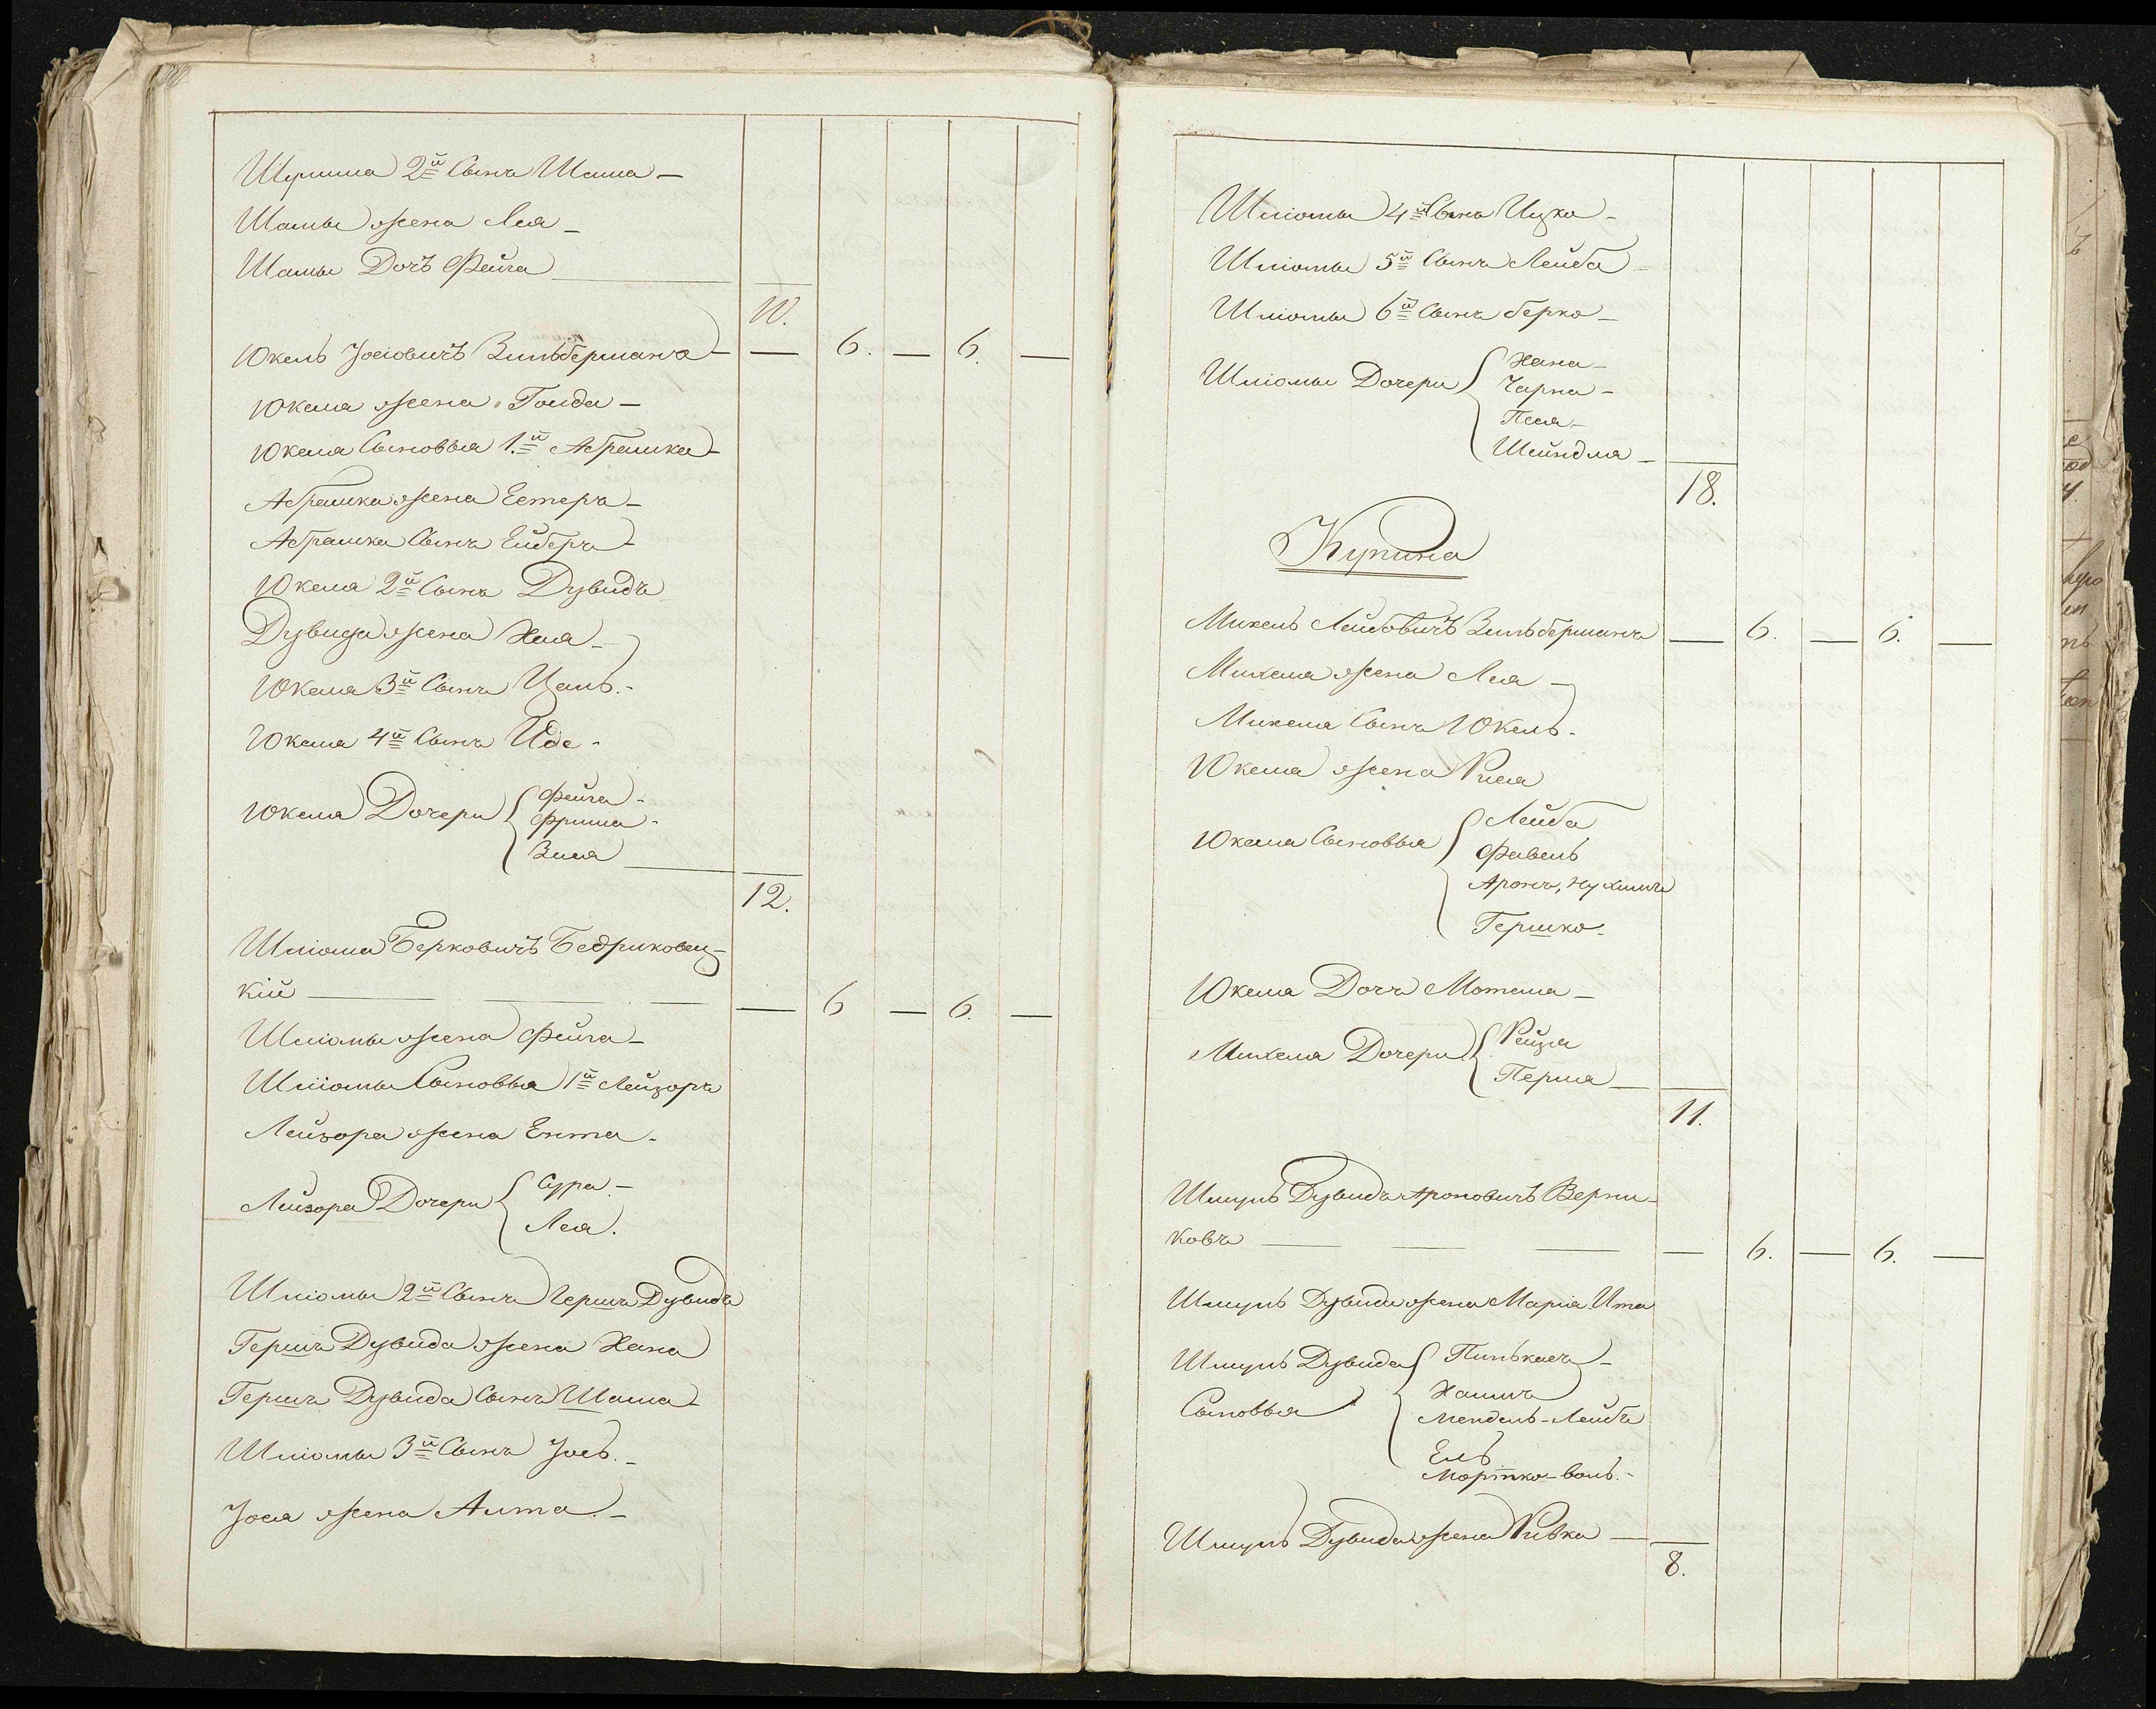 Шулима 2й Сынъ Шама —
Шамы жена Лея —
Шамы Дочь Фейга
10.
Юкель Іосіовичъ Зильберманъ — — 6. — 6. —
Юкеля жена Гольда —
Юкеля Сыновья 1.й Абрашка —
Абрашка жена Естеръ —
Абрашка Сынъ Ейберъ —
Юкеля 2й Сынъ Дувидъ
Дувида жена Хая —
Юкеля 3й Сынъ Цаль. -
Юкеля 4й Сынъ Иде -
Юкеля Дочери
Фейга -
Фрима -
Зися
12.
Шліома Берковичъ Бедриковец-
кій — — — — 6 — 6. —
Шліомы жена Фейга —
Шліомы Сыновья 1й Лейзоръ
Лейзора жена Ента -
Лейзора Дочери
Сура —
Лея.
Шліомы 2й Сынъ Гершъ Дувидъ
Гершъ Дувида жена Хана
Гершъ Дувида Сынъ Шама —
Шліомы 3й Сынъ Іось. —
Іося жена Алта. —
Шліомы 4й Сынъ Ицко -
Шліомы 5й Сынъ Лейба -
Шліомы 6й Сынъ Берко —
Шліомы Дочери
Хана —
Чарна -
Песя -
Шейндля —
18.
Купина
Михель Лейбовичъ Зильберманъ — 6. — 6. —
Михеля жена Лея —
Михеля Сынъ Юкель -
Юкеля жена Рися
Юкеля Сыновья
Лейба
Файвель
Аронъ, Нухимъ
Гершко -
Юкеля Дочъ Мотеля —
Михеля Дочери
Рейзя
Перля —
11.
Шмуль Дувидъ Ароновичъ Верни-
ковъ — — — — 6. — 6. —
Шмуль Дувида жена Марія Ита
Шмуль Дувида
Сыновья
Пинькасъ —
Хаимъ
Мендель-Лейбъ
Ель
Мортко-Воль. -
Шмуль Дувида жена Ривка —
8.